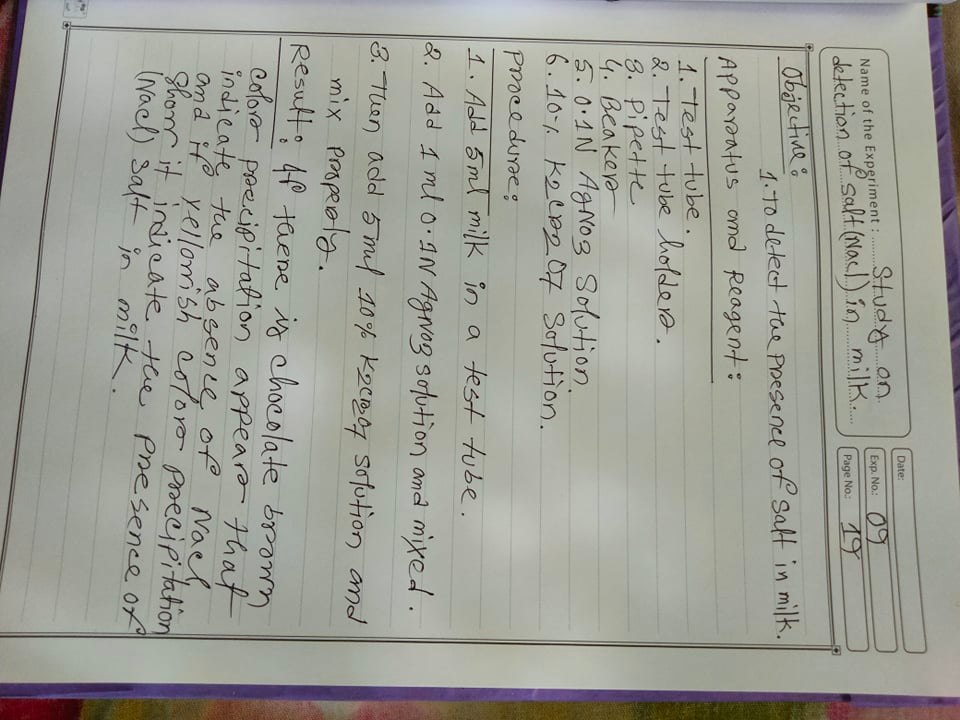 Name of the Experiment : Study on
detection of salt (Nacl) in milk.
Date:
Exp. No.: 09
Page No.: 19
Objective:
1. To detect the presence of salt in milk.
Apparatus and Reagent:
1. Test tube.
2. Test tube holder.
3. Pipette
4. Beaker
5. 0.1N AgNO3 Solution.
6. 10% K2Cr2O7 Solution.
Procedure:
1. Add 5ml milk in a test tube.
2. Add 1 ml 0.1N AgNO3 solution and mixed.
3. Then add 5ml 10% K2Cr2O7 solution and
mix properly.
Result: If there is chocolate brown
color precipitation appear that
indicate the absence of Nacl
and if yellowish color precipitation
show it indicate the presence of
(Nacl) salt in milk.